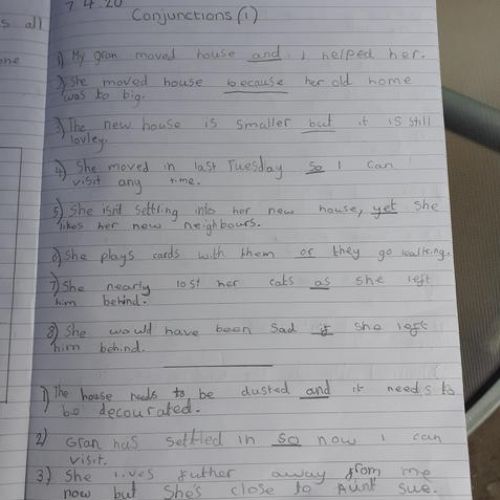 7.4.20
s all
Conjunctions (1)
one
1) My gran moved house and I helped her.
2) She moved house because her old home
was to big.
3) The new house is smaller but it is still
lovley.
4) She moved in last Tuesday so I can
visit any time.
5) She isn't settling into her new house, yet she
likes her new neighbours.
6) She plays cards with them or they go walking.
7) She nearly lost her cats as she left
him behind.
8) She would have been sad if she left
him behind.
1) The house needs to be dusted and it needs to
be decourated.
2) Gran has settled in so now I can
visit.
3) She lives futher away from me
now but she's close to Aunt Sue.